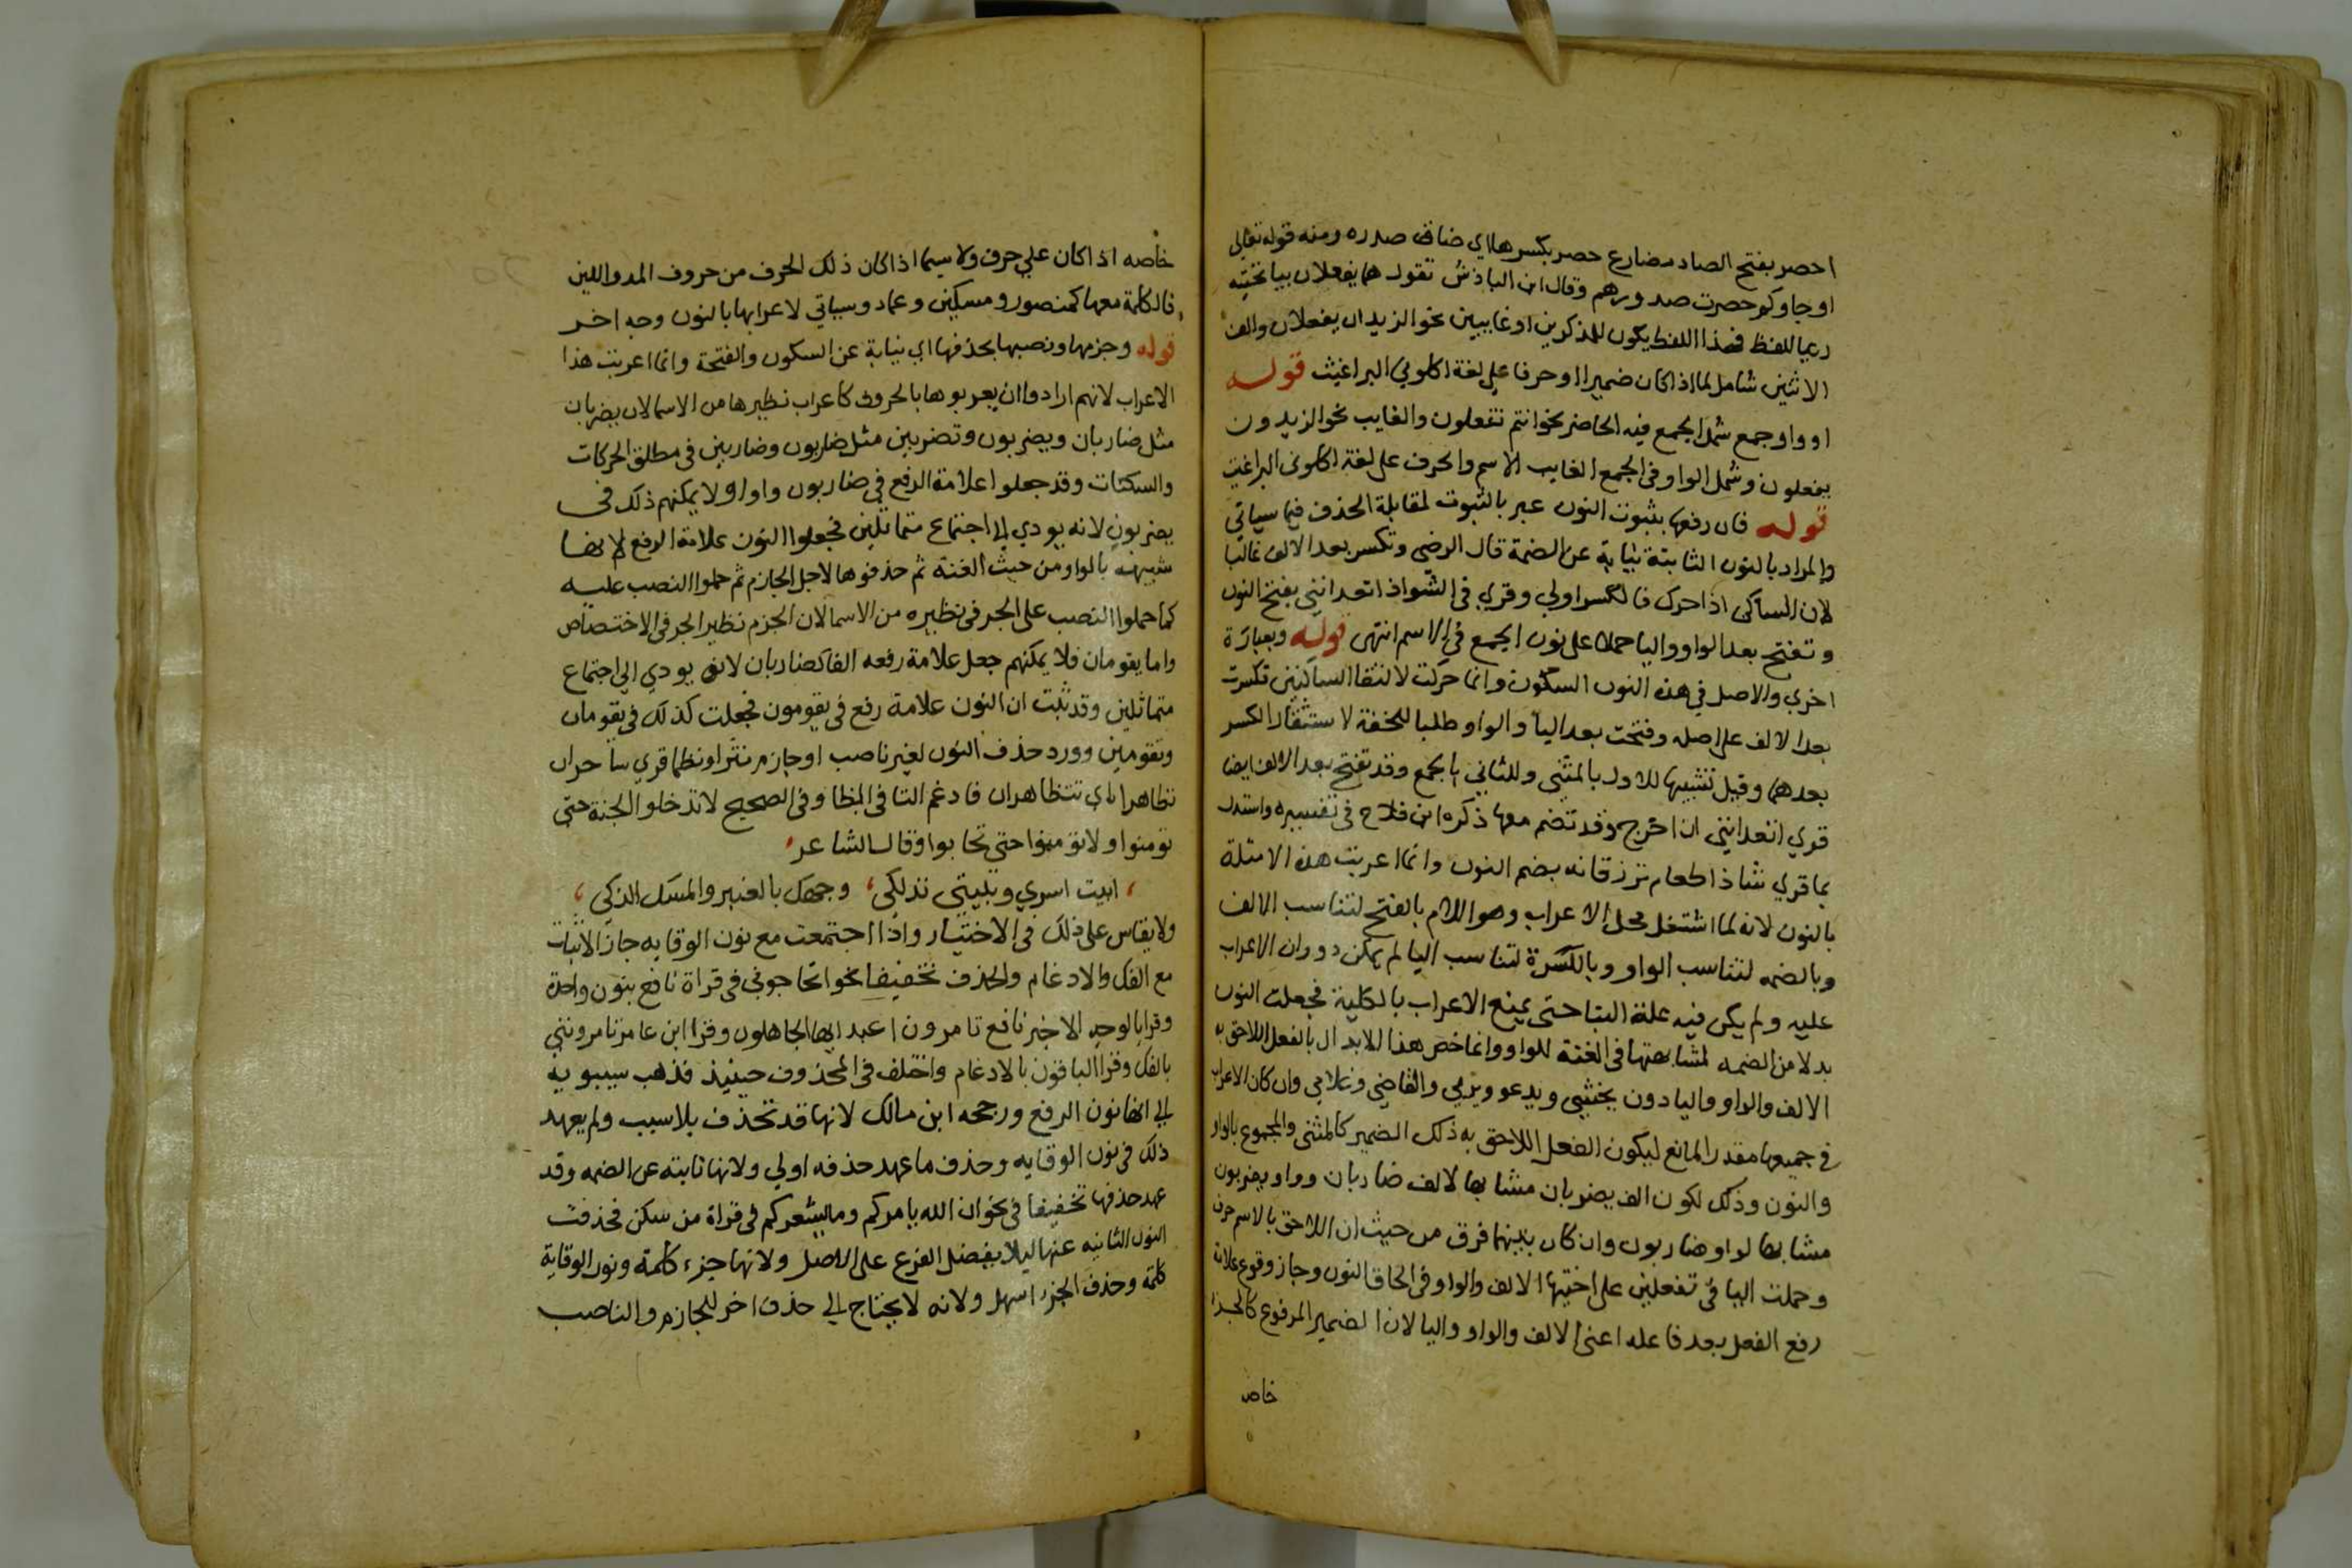 احصر بفتح الصاد مضارع حصر بكسرها اي ضاق صدره ومنه قوله تعالى
اوجاوكم حصرت صدورهم وقال ابن الباذش تقول هما يفعلان بيا تحتيه
رعيا للفظ فهذا اللفظ يكون للمذكرين او غايبين نحو الزيدان يفعلان والف
الاثنين شامل لما اذا كان ضميرا او حرفا علي لغة اكلوني البراغيث قوله
او واو جمع شمل الجمع فيه الحاضر نحو انتم تفعلون والغايب نحو الزيدون
يفعلون وشمل الواو في الجمع الغايب الاسم والحرف على لغة اكلونى البراغيث
قوله فان رفعها بثبوت النون عبر بالثبوت لمقابلة الحذف فيما سياتي
والمراد بالنون الثابتة نيابة عن الضمة قال الرضي وتكسر بعد الالف غالبا
لان الساكن اذا حرك فالكسر اولي وقري في الشواذ اتعدانني بفتح النون
وتفتح بعد الواو واليا حملا على نون الجمع في الاسم انتهى قوله وبعبارة
اخري والاصل في هذه النون السكون وانما حركت لالتقا الساكنين فكسرت
بعد الالف على اصله وفتحت بعد اليا والواو طلبا للخفة لاستثقال الكسر
بعدهما وقيل تشبيها للاول بالمثنى وللثاني بالجمع وقد تفتح بعد الالف ايضا
قري اتعدانني ان اخرج وقد تضم معها ذكره ابن فلاح في تفسيره واستدل
بما قري شاذا طعام ترزقانه بضم النون وانما اعربت هذه الامثلة
بالنون لانه لما اشتغل محل الاعراب وهو اللام بالفتح لتناسب الالف
وبالضمه لتناسب الواو وبالكسرة لتناسب اليا لم يمكن دوران الاعراب
عليه ولم يكن فيه علة البنا حتى يمنع الاعراب بالكلية فجعلت النون
بدلا من الضمه لمشابهتها في الغنة للواو وانما خص هذا الابدال بالفعل اللاحق به
الالف والواو واليا دون يخشى ويدعو ويرمي والقاضي وغلامي وان كان الاعراب
في جميعها مقدر المانع ليكون الفعل اللاحق به ذلك الضمير كالمثنى والمجموع بالواو
والنون وذلك لكون الف يضربان مشابها لالف ضاربان وواو يضربون
مشابها لواو ضاربون وان كان بينهما فرق من حيث ان اللاحق بالاسم حرف
وحملت اليا في تفعلين على اختيها الالف والواو في الحاق النون وجاز وقوع علامة
رفع الفعل بعد فاعله اعنى الالف والواو واليا لان الضمير المرفوع كالجزء
خاص
خاصه اذا كان علي حرف ولا سيما اذا كان ذلك الحرف من حروف المد واللين
فالكلمة معها كمنصور ومسكين وعماد وسياتي لاعرابها بالنون وجه اخر
قوله وجزمها ونصبها بحذفها اي نيابة عن السكون والفتحة وانما اعربت هذا
الاعراب لانهم ارادوا ان يعربوها بالحروف كاعراب نظيرها من الاسما لان يضربان
مثل ضاربان ويضربون وتضربين مثل ضاربون وضاربين في مطلق الحركات
والسكنات وقد جعلوا علامة الرفع في ضاربون واوا ولا يمكنهم ذلك في
يضربون لانه يودي الي اجتماع متماثلين فجعلوا النون علامة الرفع لانها
شبيهة بالواو من حيث الغنة ثم حذفوها لاجل الجازم ثم حملوا النصب عليه
كما حملوا النصب على الجر في نظيره من الاسما لان الجزم نظير الجر في الاختصاص
واما يقومان فلا يمكنهم جعل علامة رفعه الفا كضاربان لانه يودي الي اجتماع
متماثلين وقد ثبت ان النون علامة رفع في يقومون فجعلت كذلك في يقومان
وتقومين وورد حذف النون لغير ناصب او جازم نثرا ونظما قري ساحران
تظاهرا اي تتظاهران فادغم التا في الظا وفي الصحيح لا تدخلوا الجنة حتى
تومنوا ولا تومنوا حتى تحابوا وقال الشاعر
ابيت اسري وتبيتي تدلكي وجهك بالعنبر والمسك الذكي
ولا يقاس على ذلك في الاختيار واذا اجتمعت مع نون الوقايه جاز الاثبات
مع الفك والادغام والحذف تخفيفا نحو اتحاجونى في قراة نافع بنون واحدة
وقرا بالوجه الاخير نافع تامرون اعبد ايها الجاهلون وقرا ابن عامر تامرونني
بالفك وقرا الباقون بالادغام واختلف في المحذوف حينيذ فذهب سيبويه
الي انها نون الرفع ورجحه ابن مالك لانها قد تحذف بلا سبب ولم يعهد
ذلك في نون الوقايه وحذف ما عهد حذفه اولي ولانها نايبة عن الضمه وقد
عهد حذفها تخفيفا في نحو ان الله يامركم وما يشعركم في قراة من سكن فحذفت
النون الثانيه عنها ليلا يفضل الفرع على الاصل ولانها جزء كلمة ونون الوقاية
كلمة وحذف الجزء اسهل ولانه لا يحتاج الي حذف اخر للجازم والناصب